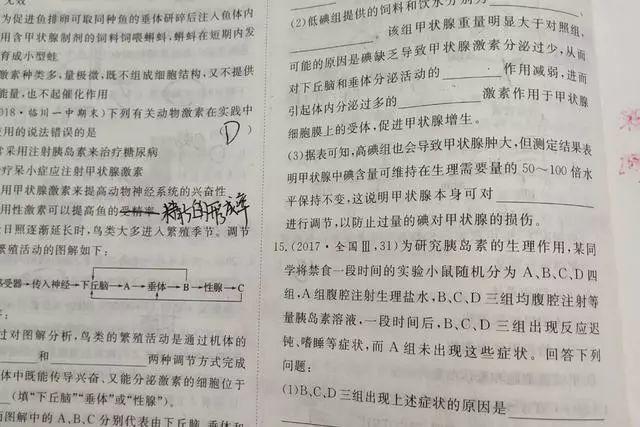 为促进鱼排卵可取同种鱼的垂体研碎后注入鱼体内
用含甲状腺制剂的饲料饲喂蝌蚪,蝌蚪在短期内发
育成小型蛙
激素种类多,量极微,既不组成细胞结构,又不提供
能量,也不起催化作用
018·临川一中期末)下列有关动物激素在实践中
使用的说法错误的是 (D)
常采用注射胰岛素来治疗糖尿病
治疗呆小症应注射甲状腺激素
用甲状腺激素来提高动物神经系统的兴奋性
用性激素可以提高鱼的受精率 精的的形成率
日照逐渐延长时,鸟类大多进入繁殖季节。调节
繁殖活动的图解如下:
感受器→传入神经→下丘脑→A→垂体→B→性腺→C
过对图解分析,鸟类的繁殖活动是通过机体的
和 两种调节方式完成
体中既能传导兴奋、又能分泌激素的细胞位于
(填“下丘脑”“垂体”或“性腺”)。
图解中的A、B、C分别代表由下丘脑、垂体和
(2)低碘组提供的饲料和饮水分别为
。该组甲状腺重量明显大于对照组,
可能的原因是碘缺乏导致甲状腺激素分泌过少,从而
对下丘脑和垂体分泌活动的 作用减弱,进而
引起体内分泌过多的 激素作用于甲状腺
细胞膜上的受体,促进甲状腺增生。
(3)据表可知,高碘组也会导致甲状腺肿大,但测定结果表
明甲状腺中碘含量可维持在生理需要量的50~100倍水
平保持不变,这说明甲状腺本身可对
进行调节,以防止过量的碘对甲状腺的损伤。
15.(2017·全国Ⅱ,31)为研究胰岛素的生理作用,某同
学将禁食一段时间的实验小鼠随机分为A、B、C、D四
组,A组腹腔注射生理盐水,B、C、D三组均腹腔注射等
量胰岛素溶液,一段时间后,B、C、D三组出现反应迟
钝、嗜睡等症状,而A组未出现这些症状。回答下列
问题:
(1)B、C、D三组出现上述症状的原因是